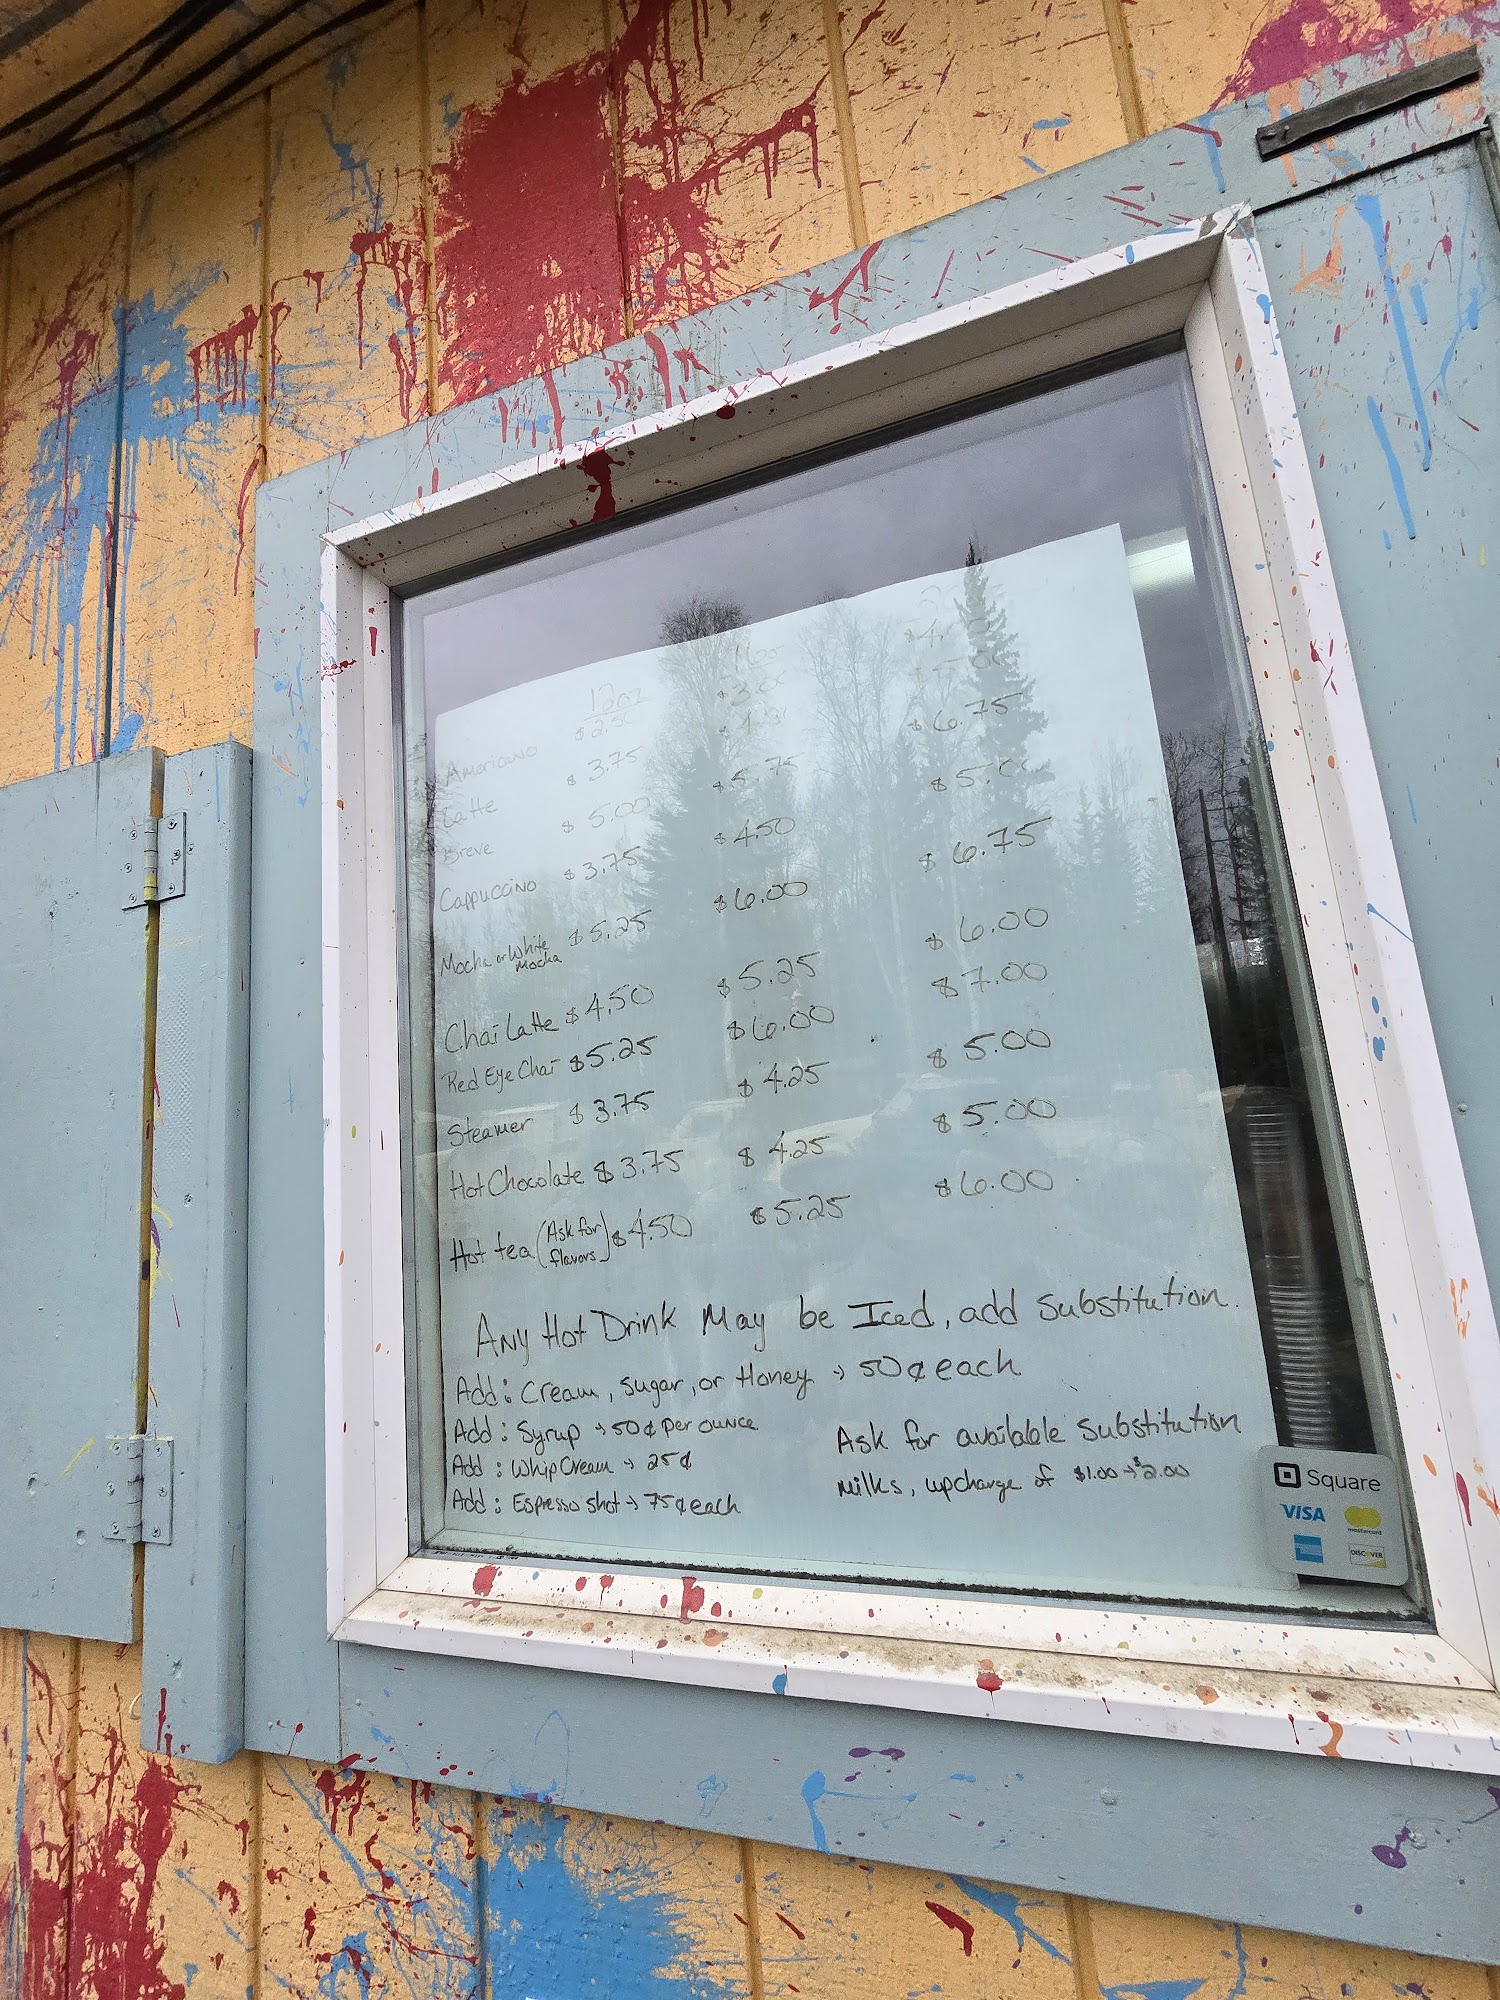 12oz
Americano
Latte $3.75
Breve $5.00 $5.75 $6.75
Cappuccino $3.75 $4.50
Mocha or White Mocha $5.25 $6.00 $6.75
Chai Latte $4.50 $5.25 $6.00
Red Eye Chai $5.25 $6.00 $7.00
Steamer $3.75 $4.25 $5.00
Hot Chocolate $3.75 $4.25 $5.00
Hot tea (Ask for flavors) $4.50 $5.25 $6.00
Any Hot Drink May be Iced, add substitution.
Add: Cream, sugar, or Honey → 50¢ each
Add: Syrup → 50¢ per ounce
Add: Whip Cream → 25¢
Add: Espresso shot → 75¢ each
Ask for available substitution
milks, upcharge of $1.00 → $2.00
Square
VISA mastercard
DISCOVER